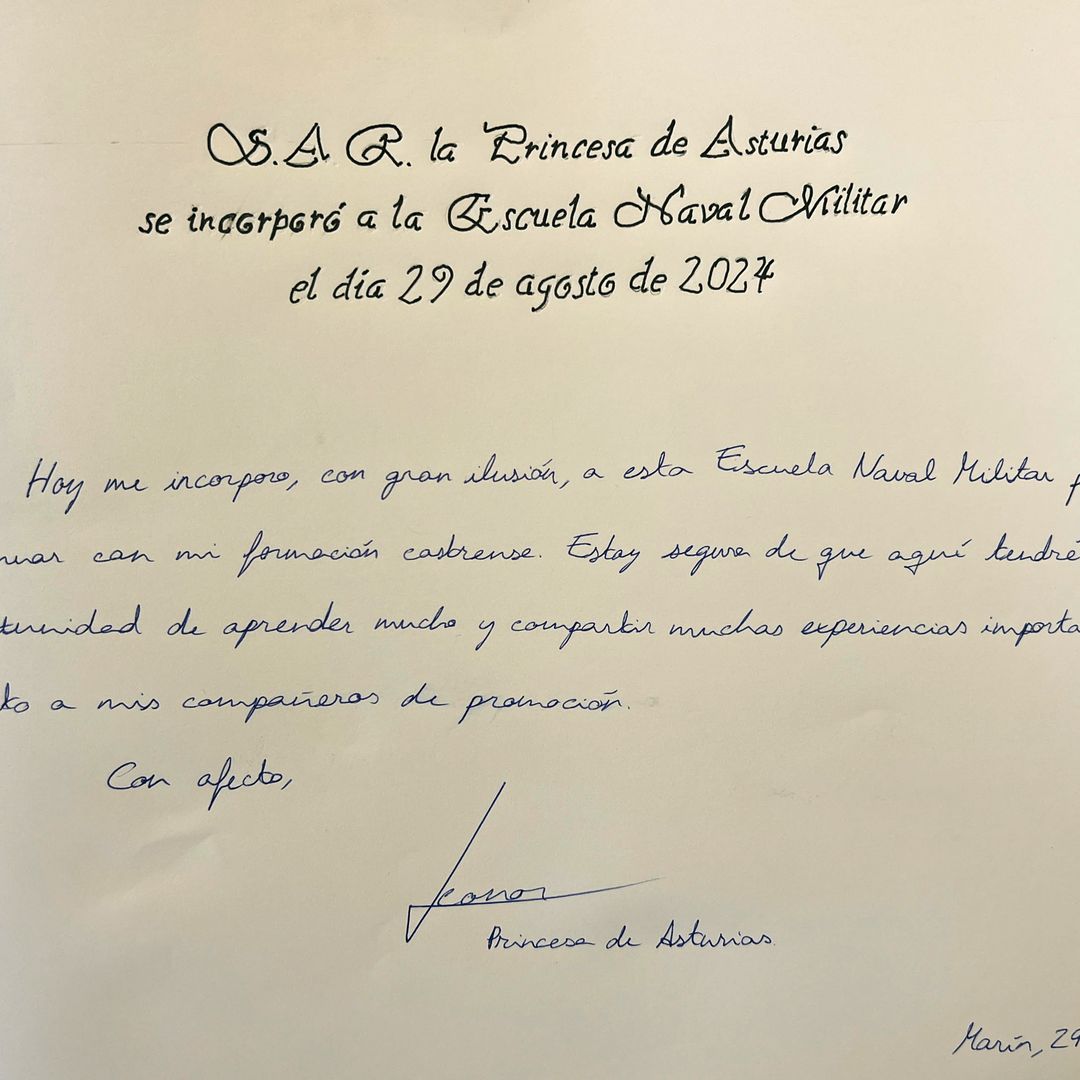 S. A. R. la Princesa de Asturias
se incorporó a la Escuela Naval Militar
el día 29 de agosto de 2024
Hoy me incorporo, con gran ilusión, a esta Escuela Naval Militar p
nuar con mi formación castrense. Estoy segura de que aquí tendré
tunidad de aprender mucho y compartir muchas experiencias importa
to a mis compañeros de promoción.
Con afecto,
Leonor
Princesa de Asturias
Marín, 29